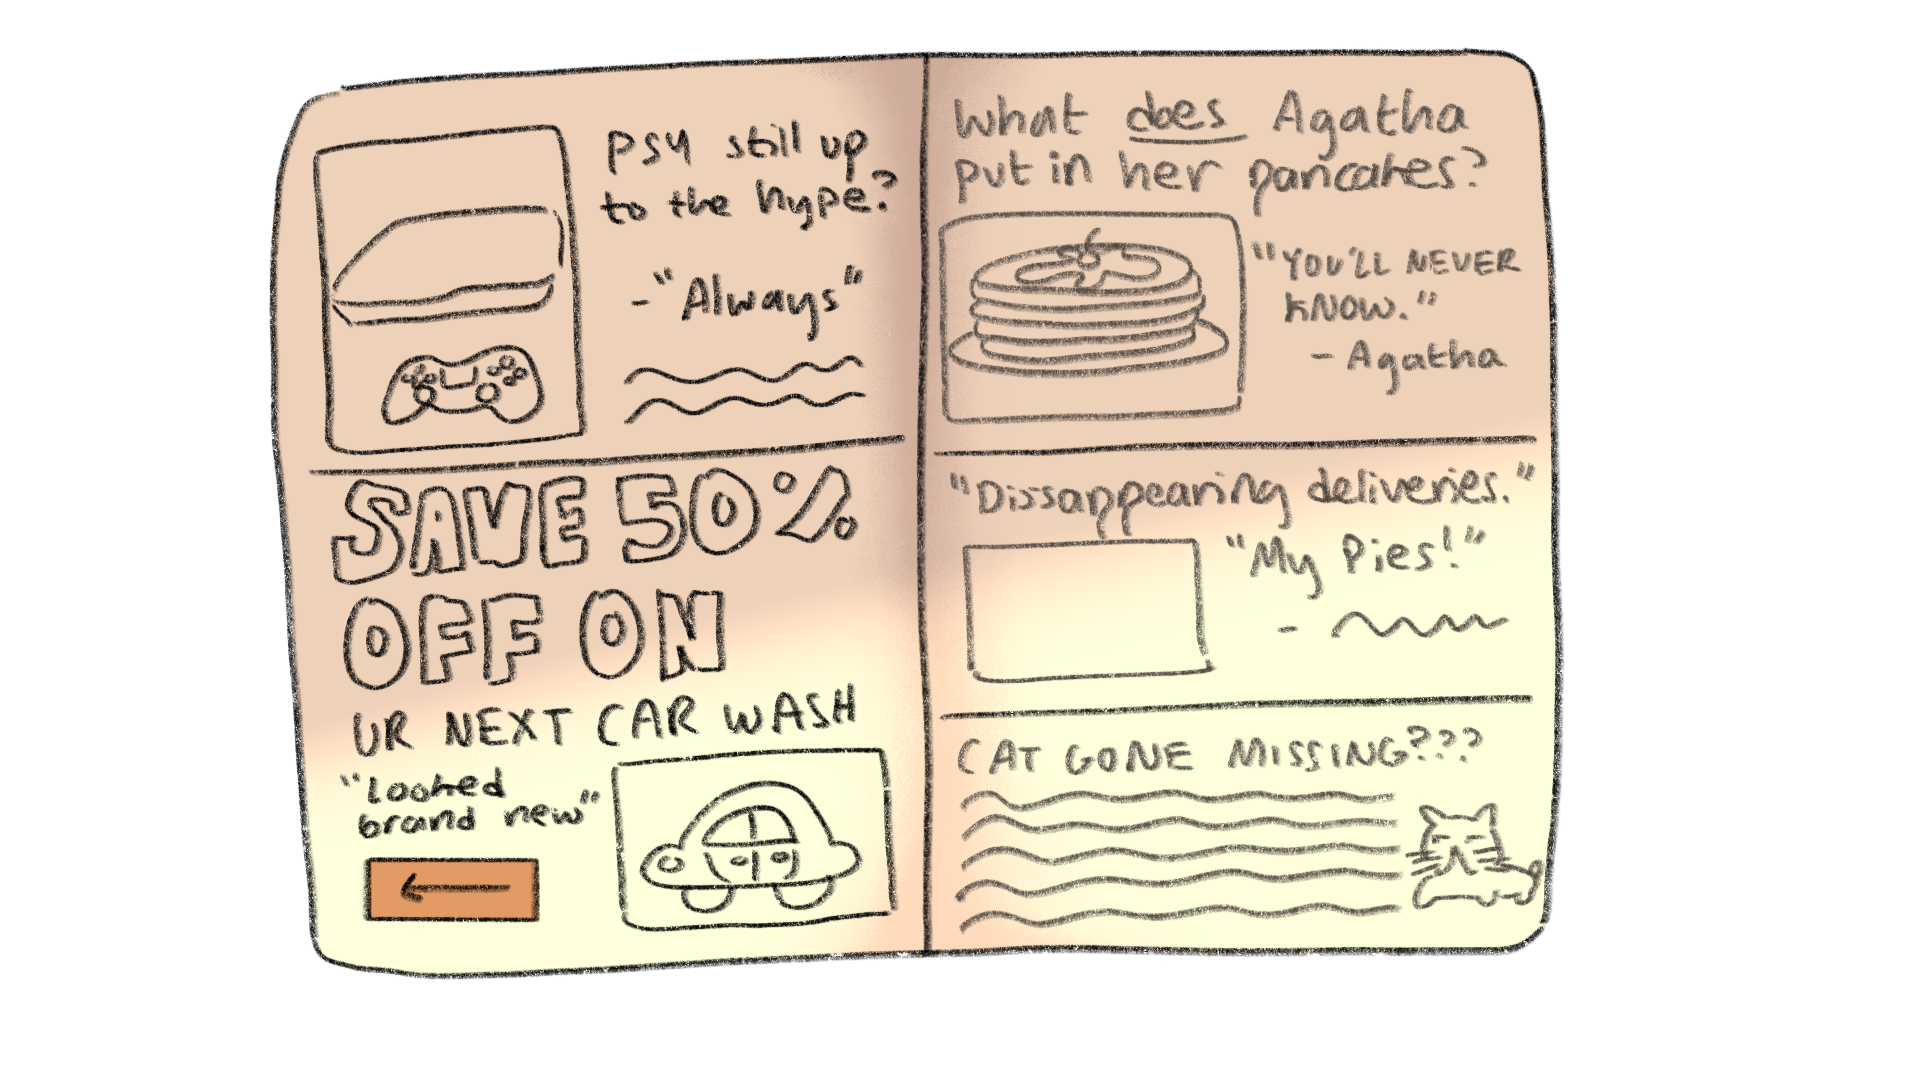 PS4 still up
to the hype?
-"Always"
SAVE 50%
OFF ON
UR NEXT CAR WASH
"Looked
brand new"
What does Agatha
put in her pancakes?
"YOU'LL NEVER
KNOW."
- Agatha
"Dissappearing deliveries."
"My Pies!"
CAT GONE MISSING???